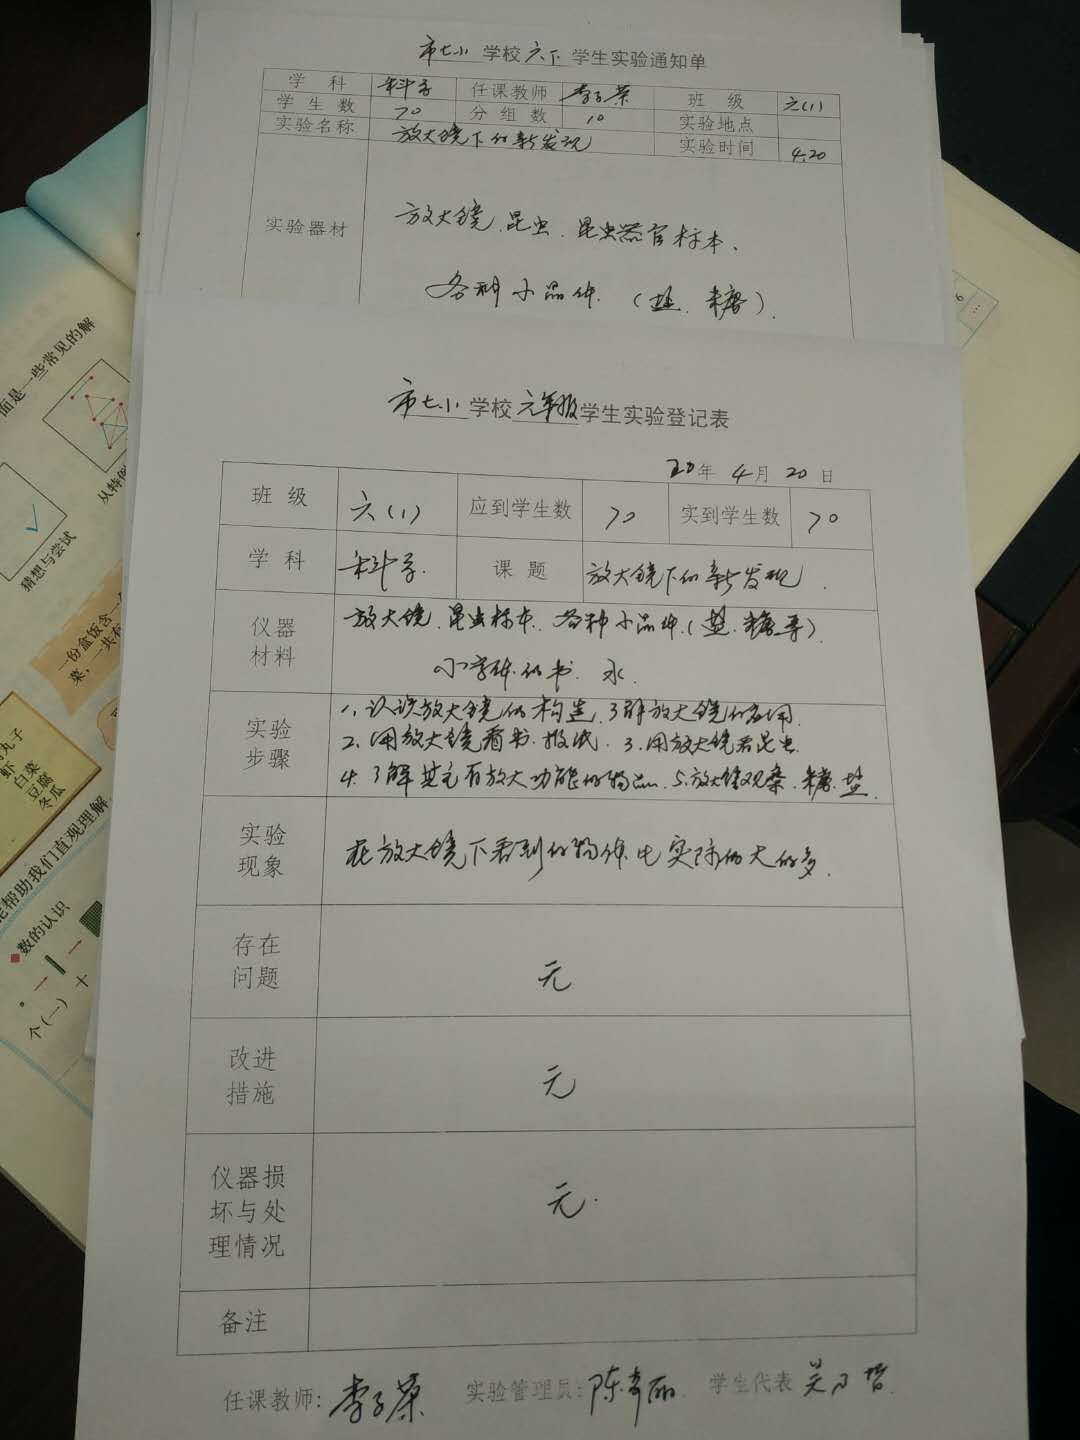 市七小 学校 六下 学生实验通知单
学 科 科学 任课教师 李子荣 班 级 六(1)
学 生 数 70 分 组 数 10 实验地点
实验名称 放大镜下的新发现 实验时间 4.20
实验器材
放大镜、昆虫、昆虫器官标本、
各种小品件.(盐、糖).
市七小 学校 六年级 学生实验登记表
20年 4月 20日
班 级 六(1) 应到学生数 70 实到学生数 70
学 科 科学. 课 题 放大镜下的新发现.
仪器
材料
放大镜、昆虫标本、各种小品件.(盐、糖等).
小字体的书. 水.
实验
步骤
1、认识放大镜的构造,了解放大镜的应用.
2、用放大镜看书、报纸. 3、用放大镜看昆虫.
4、了解其它有放大功能的物品. 5、放大镜观察.糖.盐.
实验
现象
在放大镜下看到的物体比实际的大的多.
存在
问题
无
改进
措施
无
仪器损
坏与处
理情况
无.
备注
任课教师: 李子荣 实验管理员: 陈奇丽 学生代表
面是一些常见的解
从特例
猜想与尝试
一份盒饭含一
菜,一共有
丸子
虾
白菜
豆腐
冬瓜
能帮助我们直观理解
数的认识
个(一) 十
6 …